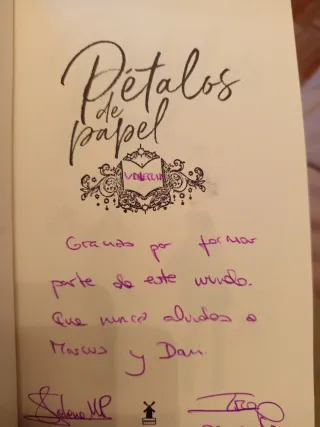 Pétalos
de
papel
Gracias por formar
parte de este mundo.
Que nunca olvides a
Marcus y Dani.